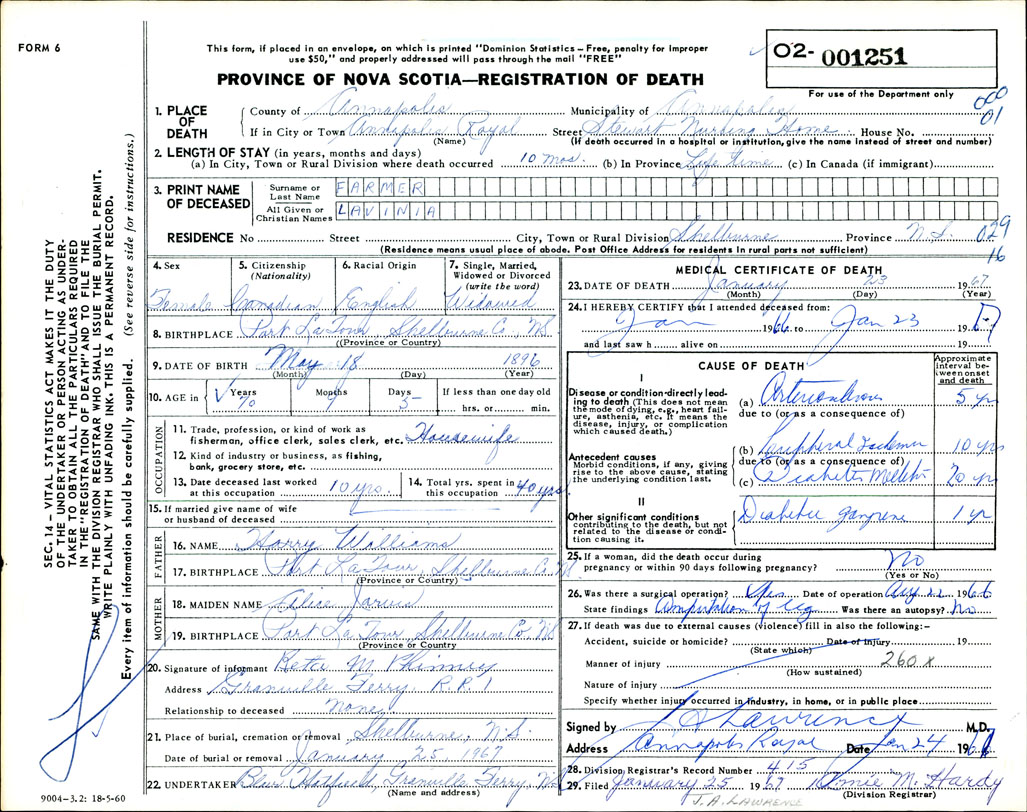 FORM 6
This form, if placed in an envelope, on which is printed "Dominion Statistics – Free, penalty for improper
use $50," and properly addressed will pass through the mail "FREE"
O2- 001251
For use of the Department only
PROVINCE OF NOVA SCOTIA—REGISTRATION OF DEATH
000
01
1. PLACE OF DEATH
County of Annapolis Municipality of Annapolis
If in City or Town Annapolis Royal Street Stewart Nursing Home House No.
(Name) (If death occurred in a hospital or institution, give the name instead of street and number)
2. LENGTH OF STAY (in years, months and days)
(a) In City, Town or Rural Division where death occurred 10 mos. (b) In Province Life time (c) In Canada (if immigrant)
3. PRINT NAME OF DECEASED
Surname or Last Name FARMER
All Given or Christian Names LAVINIA
RESIDENCE No Street City, Town or Rural Division Shelburne Province N.S.
029
16
(Residence means usual place of abode. Post Office Address for residents in rural parts not sufficient)
4. Sex 5. Citizenship (Nationality) 6. Racial Origin 7. Single, Married, Widowed or Divorced (write the word)
Female Canadian English Widowed
8. BIRTHPLACE Port La Tour, Shelburne Co, NS
(Province or Country)
9. DATE OF BIRTH May 18 1896
(Month) (Day) (Year)
10. AGE in Years Months Days If less than one day old
70 5 hrs. or min.
OCCUPATION
11. Trade, profession, or kind of work as
fisherman, office clerk, sales clerk, etc. Housewife
12. Kind of industry or business, as fishing,
bank, grocery store, etc.
13. Date deceased last worked at this occupation 10 yrs. 14. Total yrs. spent in this occupation 40 yrs
15. If married give name of wife
or husband of deceased
FATHER
16. NAME Harry Williams
17. BIRTHPLACE Port La Tour, Shelburne Co. N
(Province or Country)
MOTHER
18. MAIDEN NAME Alice Jarvis
19. BIRTHPLACE Port La Tour Shelburne Co NS
(Province or Country
20. Signature of informant M Phinney
Address Granville Ferry R.R.1
Relationship to deceased None
21. Place of burial, cremation or removal Shelburne, N.S.
Date of burial or removal January 25, 1967
22. UNDERTAKER Hatfield, Granville Ferry, NS
(Name and address)
MEDICAL CERTIFICATE OF DEATH
23. DATE OF DEATH January 23 1967
(Month) (Day) (Year)
24. I HEREBY CERTIFY that I attended deceased from:
Jan 1966 to Jan 23 1967
and last saw h alive on 19
CAUSE OF DEATH
Approximate interval between onset and death
I
Disease or condition directly leading to death (This does not mean the mode of dying, e.g., heart failure, asthenia, etc. It means the disease, injury, or complication which caused death.)
(a) 5 yr
due to (or as a consequence of)
Antecedent causes
Morbid conditions, if any, giving rise to the above cause, stating the underlying condition last.
(b) Peripheral 10 yrs
due to (or as a consequence of)
(c) Diabetes Mellitus 20 yrs
II
Other significant conditions contributing to the death, but not related to the disease or condition causing it.
Diabetic gangrene 1 yr
25. If a woman, did the death occur during
pregnancy or within 90 days following pregnancy? No
(Yes or No)
26. Was there a surgical operation? Yes Date of operation Aug 22 1966
State findings Amputation of leg Was there an autopsy? No
27. If death was due to external causes (violence) fill in also the following:–
Accident, suicide or homicide? Date of injury 19
(State which)
Manner of injury 260 x
(How sustained)
Nature of injury
Specify whether injury occurred in industry, in home, or in public place
Signed by Lawrence M.D.
Address Annapolis Royal Date Jan 24 1967
28. Division Registrar's Record Number 415
29. Filed January 25 1967 Annie M. Hardy
(Division Registrar)
J.A. LAWRENCE
SEC. 14 – VITAL STATISTICS ACT MAKES IT THE DUTY
OF THE UNDERTAKER OR PERSON ACTING AS UNDER-
TAKER TO OBTAIN ALL THE PARTICULARS REQUIRED
IN THE "REGISTRATION OF DEATH" AND TO FILE THE
SAME WITH THE DIVISION REGISTRAR WHO SHALL ISSUE THE BURIAL PERMIT.
WRITE PLAINLY WITH UNFADING INK. THIS IS A PERMANENT RECORD.
Every item of information should be carefully supplied. (See reverse side for instructions.)
9004-3.2: 18-5-60